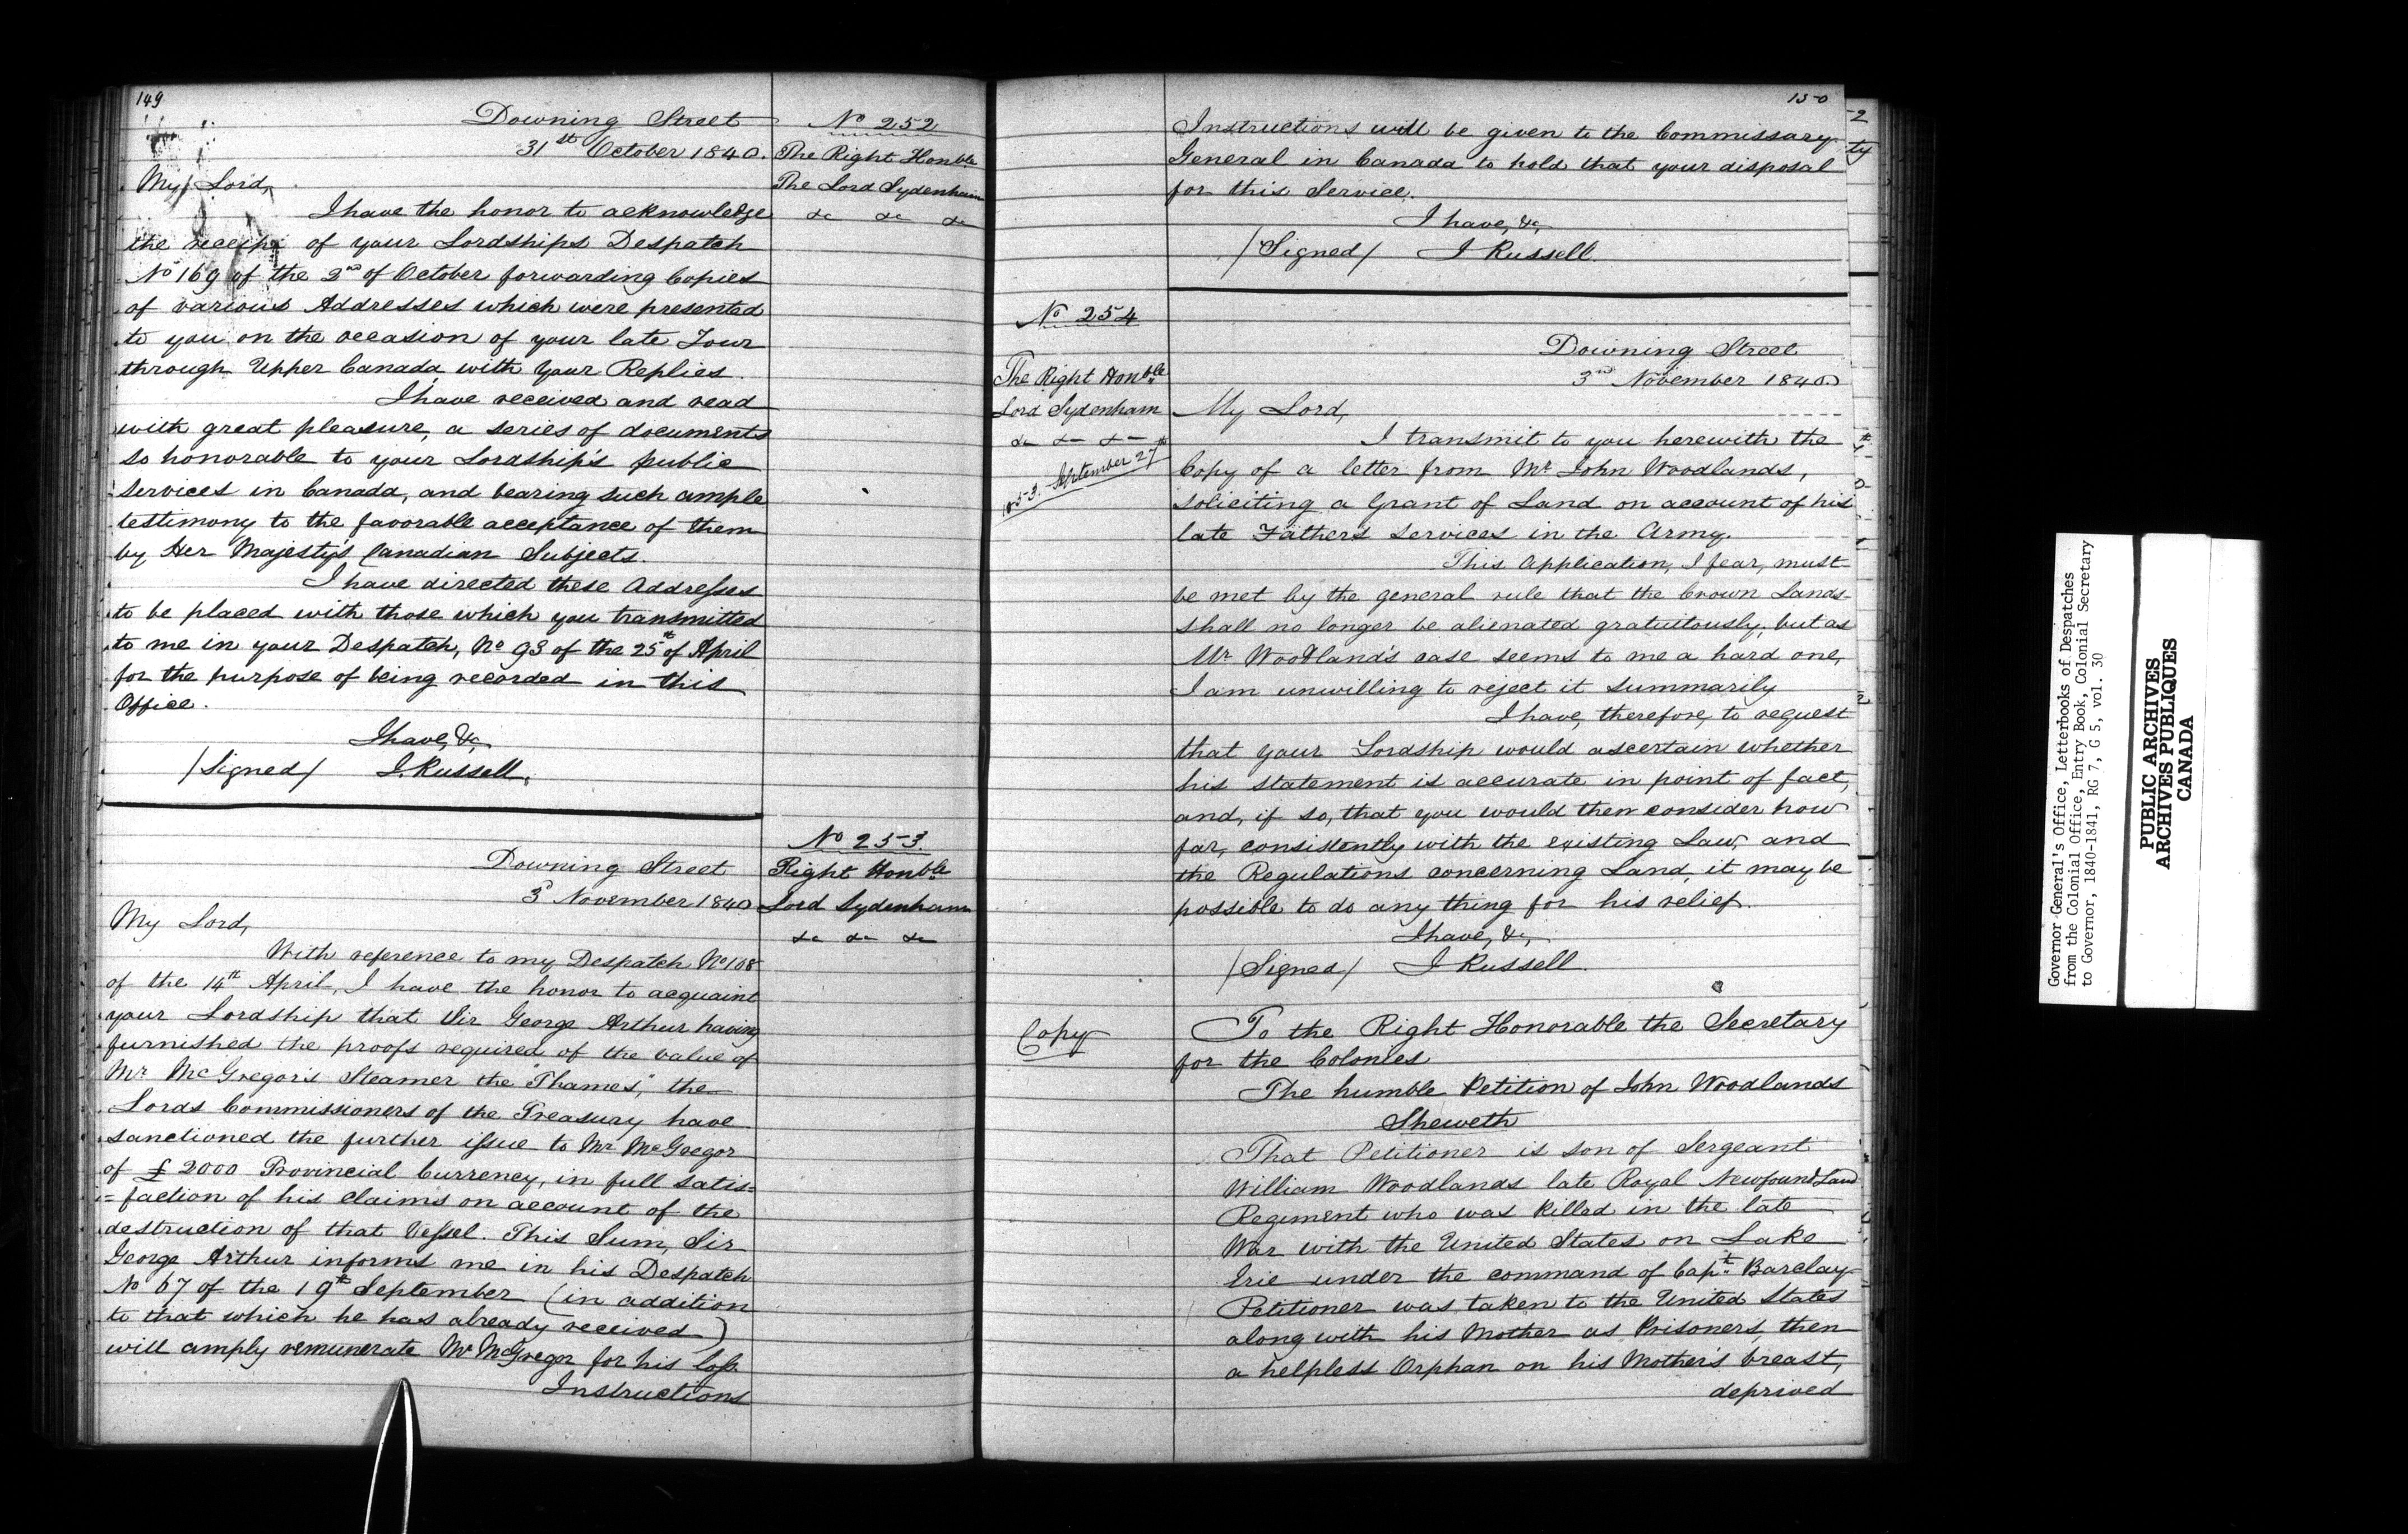 149
Downing Street
31st October 1840.
No 252
The Right Honble
The Lord Sydenham
&c &c &c
My Lord,
I have the honor to acknowledge
the receipt of your Lordships Despatch
No 169 of the 2nd of October forwarding Copies
of various Addresses which were presented
to you on the occasion of your late Tour
through Upper Canada with your Replies.
I have received and read
with great pleasure, a series of documents
so honorable to your Lordship's public
services in Canada, and bearing such ample
testimony to the favorable acceptance of them
by Her Majesty's Canadian Subjects.
I have directed these Addresses
to be placed with those which you transmitted
to me in your Despatch, No 93 of the 25th of April
for the purpose of being recorded in this
Office.
I have, &c,
/Signed/ J. Russell,
No 253.
Right Honble
Lord Sydenham
&c &c &c
Downing Street
3d November 1840
My Lord,
With reference to my Despatch No 108
of the 14th April, I have the honor to acquaint
your Lordship that Sir George Arthur having
furnished the proofs required of the value of
Mr McGregor's Steamer the "Thames", the
Lords Commissioners of the Treasury have
sanctioned the further issue to Mr McGregor
of £2000 Provincial Currency, in full satis=
=faction of his claims on account of the
destruction of that Vessel. This Sum, Sir
George Arthur informs me in his Despatch
No 67 of the 19th September (in addition
to that which he has already received)
will amply remunerate Mr McGregor for his loss.
Instructions
150
Instructions will be given to the Commissary
General in Canada to hold that your disposal
for this Service.
I have, &c,
/Signed/ J Russell.
No 254
The Right Honble
Lord Sydenham
&c &c &c
September 27
Downing Street
3rd November 1840.
My Lord,
I transmit to you herewith the
Copy of a letter from Mr John Woodlands,
soliciting a Grant of Land on account of his
late Father's services in the Army.
This Application, I fear, must
be met by the general rule that the Crown Lands
shall no longer be alienated gratuitously, but as
Mr Woodland's case seems to me a hard one,
I am unwilling to reject it summarily
I have, therefore, to request
that your Lordship would ascertain whether
his statement is accurate in point of fact,
and, if so, that you would then consider how
far, consistently with the existing Law, and
the Regulations concerning Land, it may be
possible to do any thing for his relief.
I have, &c,
/Signed/ J Russell.
Copy
To the Right Honorable the Secretary
for the Colonies
The humble Petition of John Woodlands
Sheweth
That Petitioner is son of Sergeant
William Woodlands late Royal Newfoundland
Regiment who was killed in the late
War with the United States on Lake
Erie under the command of Capt. Barclay
Petitioner was taken to the United States
along with his Mother as Prisoners, then
a helpless Orphan on his Mother's breast,
deprived
Governor General's Office, Letterbooks of Despatches
from the Colonial Office, Entry Book, Colonial Secretary
to Governor, 1840-1841, RG 7, G 5, vol. 30
PUBLIC ARCHIVES
ARCHIVES PUBLIQUES
CANADA